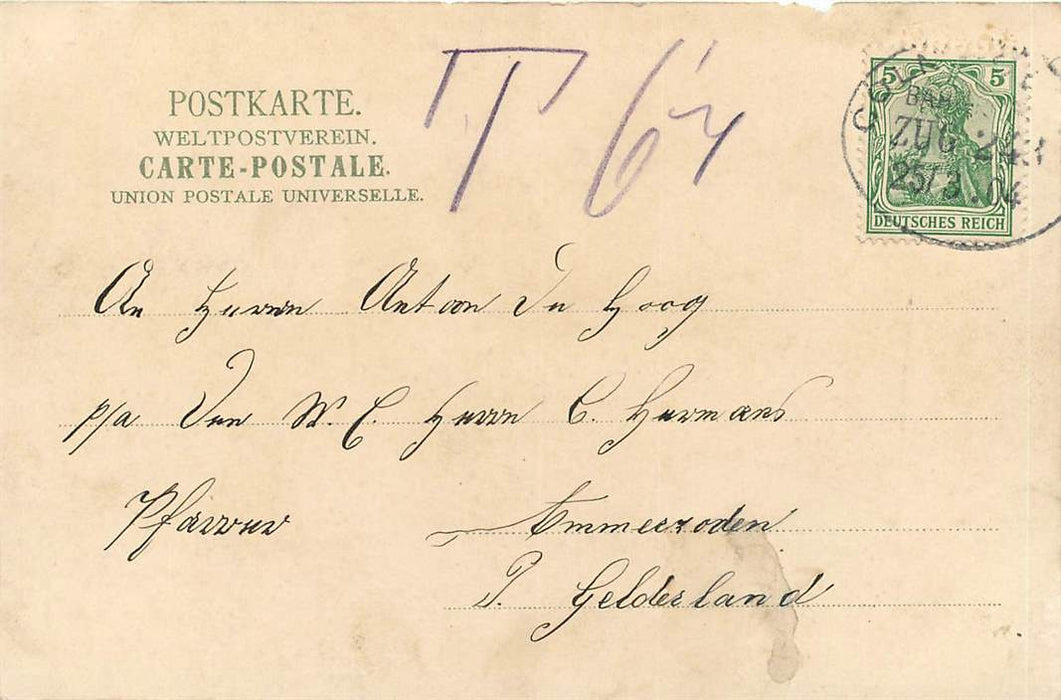 POSTKARTE.
WELTPOSTVEREIN.
CARTE-POSTALE.
UNION POSTALE UNIVERSELLE.
T 64
5 5
DEUTSCHES REICH
BAH
ZUG 243
25/3.04
An Herrn Antoon De Hoog
p/a Den W. E. Herrn C. Hermans
Pfarrer Ammerzoden
P. Gelderland